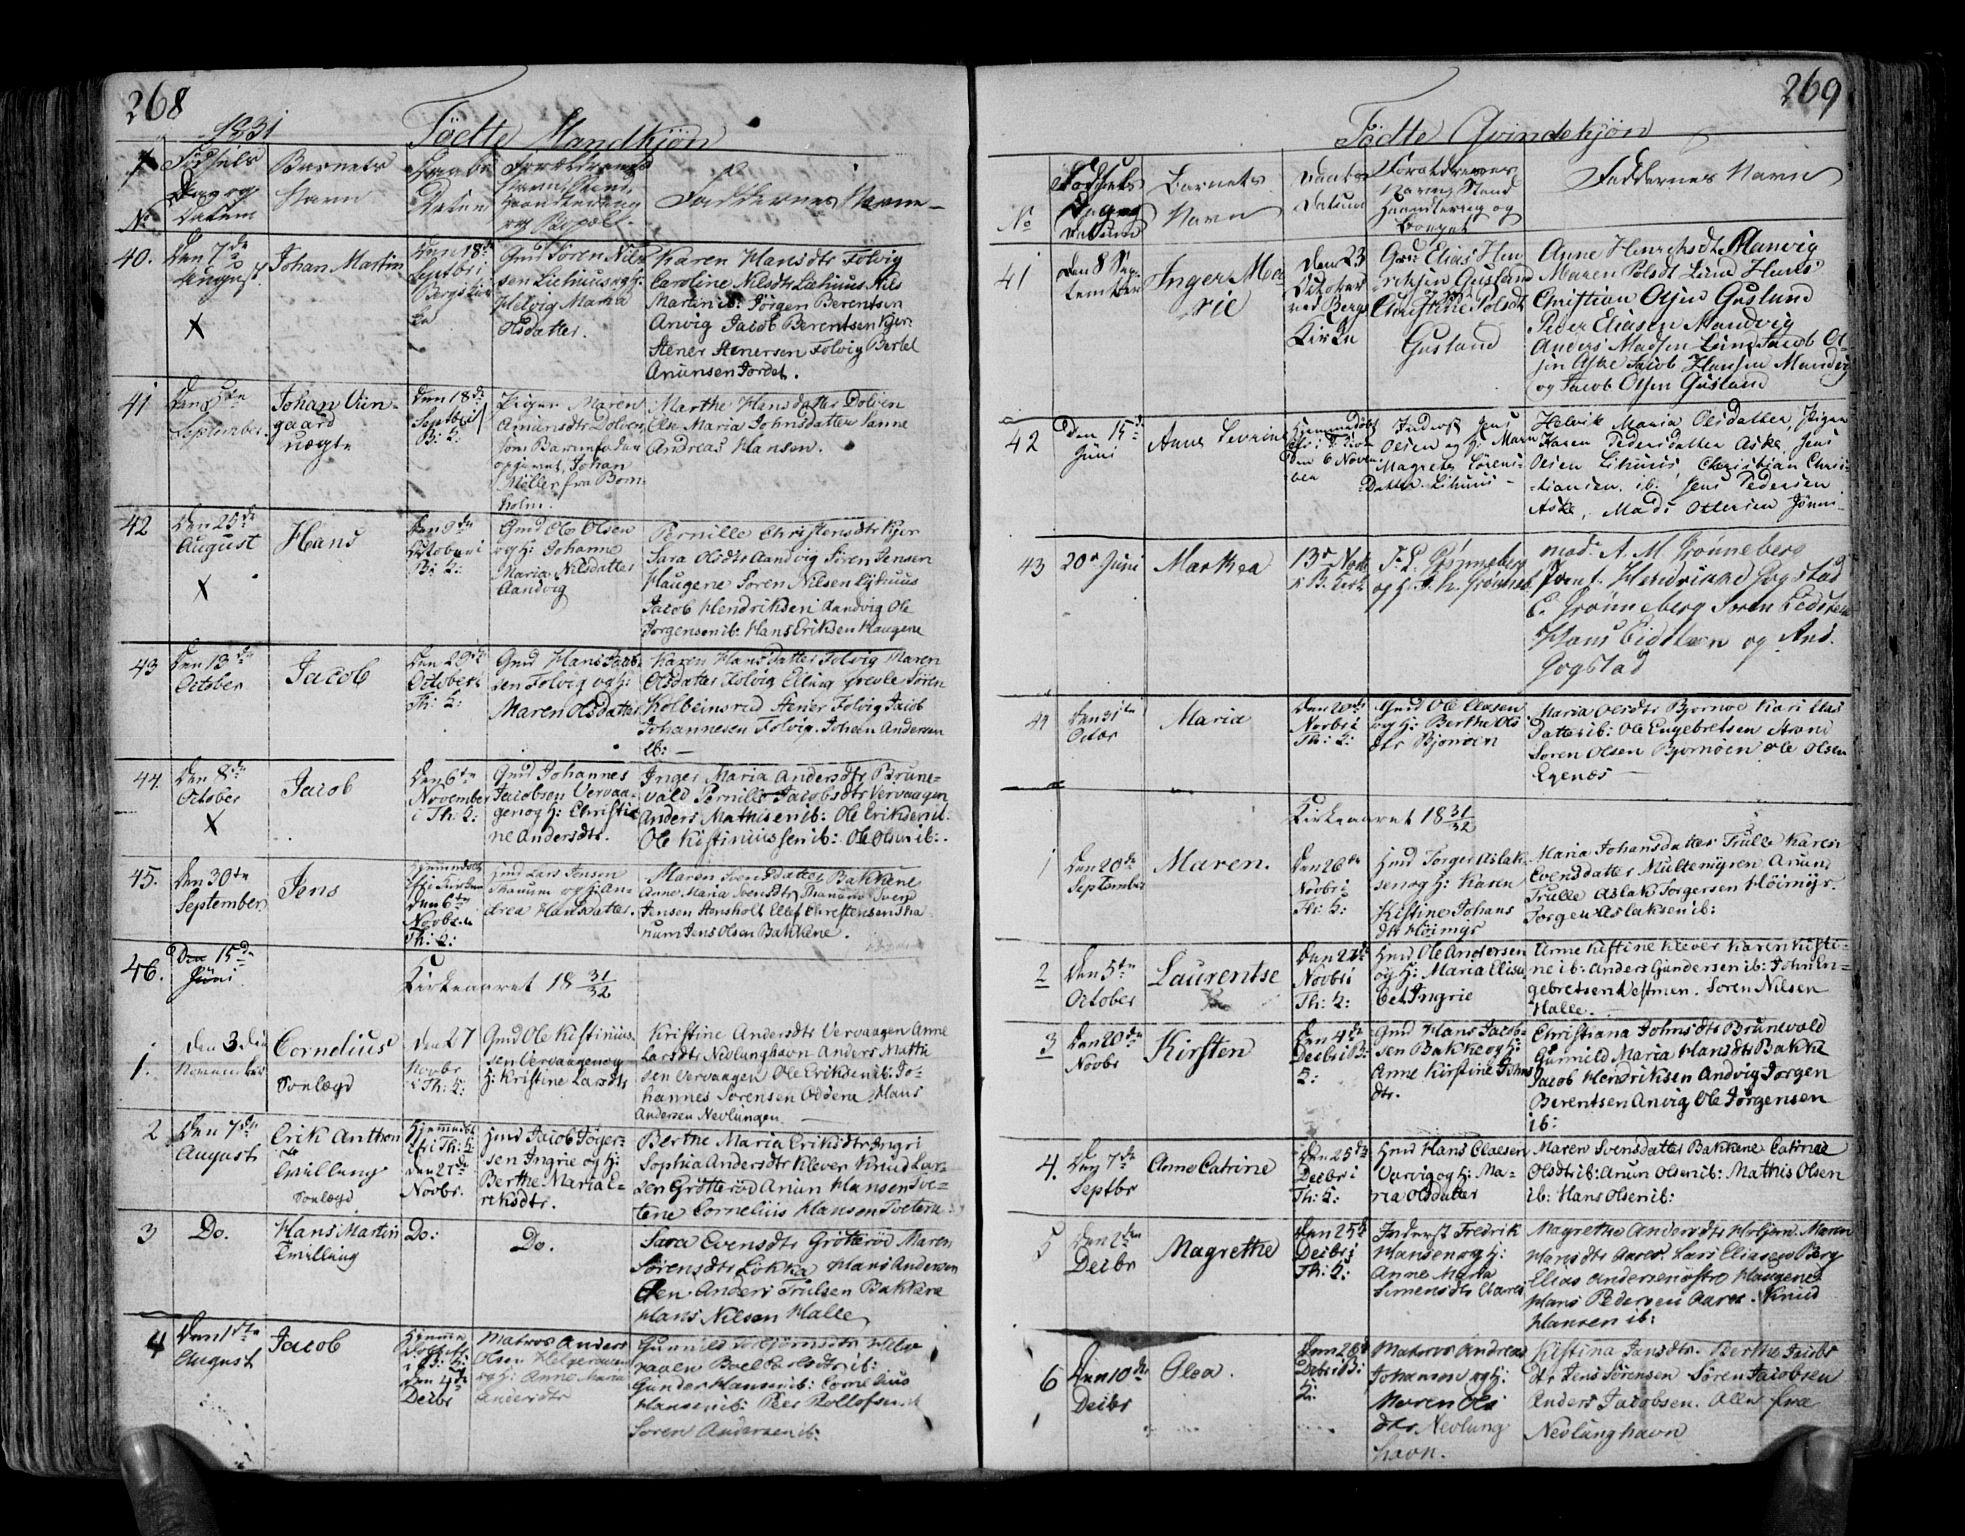 268
1831
Födte Mandkjön
No
Födsels Dag og Datum
Barnets Navn
Daabs Datum
Forældrenes Navn, Stand, Haandtering og Bopæl
Faddernes Navn
40.
Den 7de August
Johan Martin
Den 18de Septbr i Bergs Kirke
Gmd Sören Nilsen Liehuus og H:
Helvig Maria
Olsdatter.
Karen Hansdtr Folvig
Caroline Nilsdtr Liehuus Nils
Martin ib: Jörgen Berentsen
Anvig Jacob Berentsen Kjer
Stener Stenersen Folvig Bertel
Anunsen Jordet.
41
Den 5te September
Johan Vün-
gaard
uægte
Den 18de Septbr i B: K:
Piger Maren
Amunsdtr Dolven
som Barnefader
opgivet, Johan
Möller fra Born
holm.
Marthe Hansdatter Dolven
Else Maria Johnsdatter Sanne
Andreas Hansen.
42
August
Hans
Den 9de Octoberi B: K:
Gmd Ole Olsen
og H: Johanne
Maria Nilsdatter
Aandvig
Pernille Christensdtr Kjer
Sara Olsdtr Aandvig Sören Jensen
Haugene Sören Nilsen Liehuus
Jacob Hendriksen Aandvig Ole
Jorgensen ib: Hans Eriksen Haugene
43
Den 13de October
Jacob
Den 29de Octoberi Th: K:
Gmd Hans Jacob-
sen Folvig og H:
Maren Olsdatter
Karen Hansdatter Folvig Maren
Olsdatter Folvig Elling Sören
Kolbeinsrud Stener Folvig Jacob
Johannesen Folvig. Johan Andersen
ib: —
44.
Den 8de October
Jacob
Den 6te November i Th: K:
Gmd Johannes
Jacobsen Vervaa-
gen og H: Christi-
ne Andersdtr.
Inger Maria Andersdtr Brune-
vald Pernille Jacobsdtr Vervaagen
Anders Mathisen ib: Ole Eriksen ib:
Ole Kistiniussen ib: Ole Olsen ib:.
45.
Den 30te September
Jens
Den 6te Novbr i Th: K:
Gmd Lars Jensen
Thanum og H: An-
drea Hansdatter.
Maren Svensdatter Bakkene
Anne Maria Svensdtr Thanum Svend
Jensen Stensholt Ellef Christensen Tha-
num Jens Olsen Bakkene.
46.
Den 15de
Juni
Kirkeaaret 18 31/32
1.
Den 3die November
Cornelius
Nevlægd
Den 27 Novbr i Th: K:
Gmd Ole Kistinius-
sen Vervaagen og
H: Kristine Larsdtr
Kristine Andersdtr Vervaagen Anne
Larsdtr Nevlunghavn Anders Mathi
sen Vervaagen Ole Eriksen ib: Jo-
hannes Sörensen Oddene Hans
Andersen Nevlungen
2
Den 7de August
Erik Anthon
Tvilling
Hjemmedöbt
i Th: K: Den 27de Novbr.
Hmd Jacob Jöger-
sen Ingrie og H:
Berthe Maria E-
riksdtr.
Berthe Maria Eriksdtr Ingri
Sophia Andersdtr Klever Knud Lar-
sen Gröteröd Anun Hansen Tve-
tene Cornelius Hansen Tvetene
3
Do.
Hans Martin
Tvilling
Do:
Do.
Sara Evensdtr Gröteröd Maren
Sörensdtr Lökka Hans Andersen
Anders Trulsen Bakkene
Hans Nilsen Halle
4
Den 1ste August
Jacob
Den 4de Decbr
Matros Anders
Olsen Helgeroaen
og H: Anne Maria
Andersdtr
Gunnild Helge
raaen Boel ib:
Gunder Hansen ib: Cornelius
Hansen ib: Peer Rollofsen ib
Sören Andersen ib:
269
Födte Qvindekjön
No
Födsels Dag og Datum
Barnets Navn
Daabs Datum
Foraldrenes Navn, Stand Haandtering og Bopæl
Faddernes Navn
41
Den 8 September
Inger Ma-
rie
Den 23 October ved Bergs Kirke
Gmd Elias Hen
riksen Gusland
og H:
Christine Polsdtr
Gusland
Anne Henriksdtr Manvig
Maren Polsdt Lund Hans
Christian Olsen Gusland
Peder Eliasen Mandvig
Anders Madsen Lund Jacob Ol-
sen Aske Jacob Hansen Mandvig
og Jacob Olsen Gusland
42
Den 15de Juni
Anne Severine
Den 6 Noven
Inderst Jens
Olsen og H: Maren
Magrete Sörens-
Datter Lihuus -
Helvik Maria Olsdatter, Pigen
Karen Pedersdatter Aske, Jens
Olsen Lihuus Christian Chris-
tiansen ib. Jens Pedersen
Aske, Mads Ottersen
43
20de Juni
Marthea
13de
i B. Kirk
F. L. Grönneberg
og H.
mad. A. M. Grönneberg
Hendrikke Gogstad
C. Grönneberg Sören Eidsten
Hans Eidsten og And.
Gogstad
44
Den 31te Octbr
Maria
Den 20de Novbri Th: K:
Gmd Ole Olsen
og H: Berthe Ols
dtr Bjönöen
Maria Olsdtr Bjornöe Kari
Datter ib: Ole Engebretsen
Sören Olsen Bjornöen Ole Olsen
Egenæs
Kirkeaaret 18 31/32
1
Den 20de September
Maren.
Den 26de Novbri Th: K:
Hmd Torger Aslak-
sen og H: Karen
Kistine Johans
dtr Höimyr
Maria Johansdatter Trulle Karen
Evensdatter Multemyren Anund
Trulle Aslak Torgersen Höimyr.
Torgen Aslaksen ib:
2
Den 5te October
Laurentse
Den 27de Novbri Th: K:
Hmd Ole Andersen
og H: Maria Elisa
bet Ingrie
Anne Kistine Klever Karen Kisti-
ne ib: Anders Gundersen ib: John En-
gebretsen Vestmen. Sören Nilsen
Halle.
3
Den 20de Novbr
Kirsten
Den 4de Decbr i B: K:
Gmd Hans Jacob-
sen Bakke og H:
Anne Kirstine Johns
dtr.
Christiana Johnsdtr Brunevald
Gunnild Maria Hansdtr Bakke
Jacob Hendriksen Andvig Jörgen
Berentsen Anvig Ole Jörgensen
ib:
4.
Den 7de Septbr
Anne Catrine
Den 25de Decbri Th: K:
Hmd Hans Claesen
Varvig og H: Ma-
ria Olsdatter
Maren Svensdatter Bakkene Catrine
Olsdtr ib: Anun Olsen ib: Mathis Olsen
ib: Hans Olsen ib:
5
Den 2den Decbr
Magrethe
Den 25de Decbr i Th: K:
Inderst Fredrik
Hansen og H:
Anne Marta
Simensdtr Aarø
Magrethe Andersdtr Maren
Hansdtr Aarø. Lars Eliasen Berg
Elias Andersen östre Haugene
Hans Pedersen Aarøe. Knud
Hansen ib:
6
Den 10de Decbr
Olea.
Den 26de Decbr i B: K:
Matros Andreas
Johannsen og H:
Maren Ols
dtr Nevlung
havn.
Kistina Jansdtr. Berthe Jacobs
dtr Jens Sörensen Sören Jacobsen
Anders Jacobsen. Alle fra
Nevlunghavn